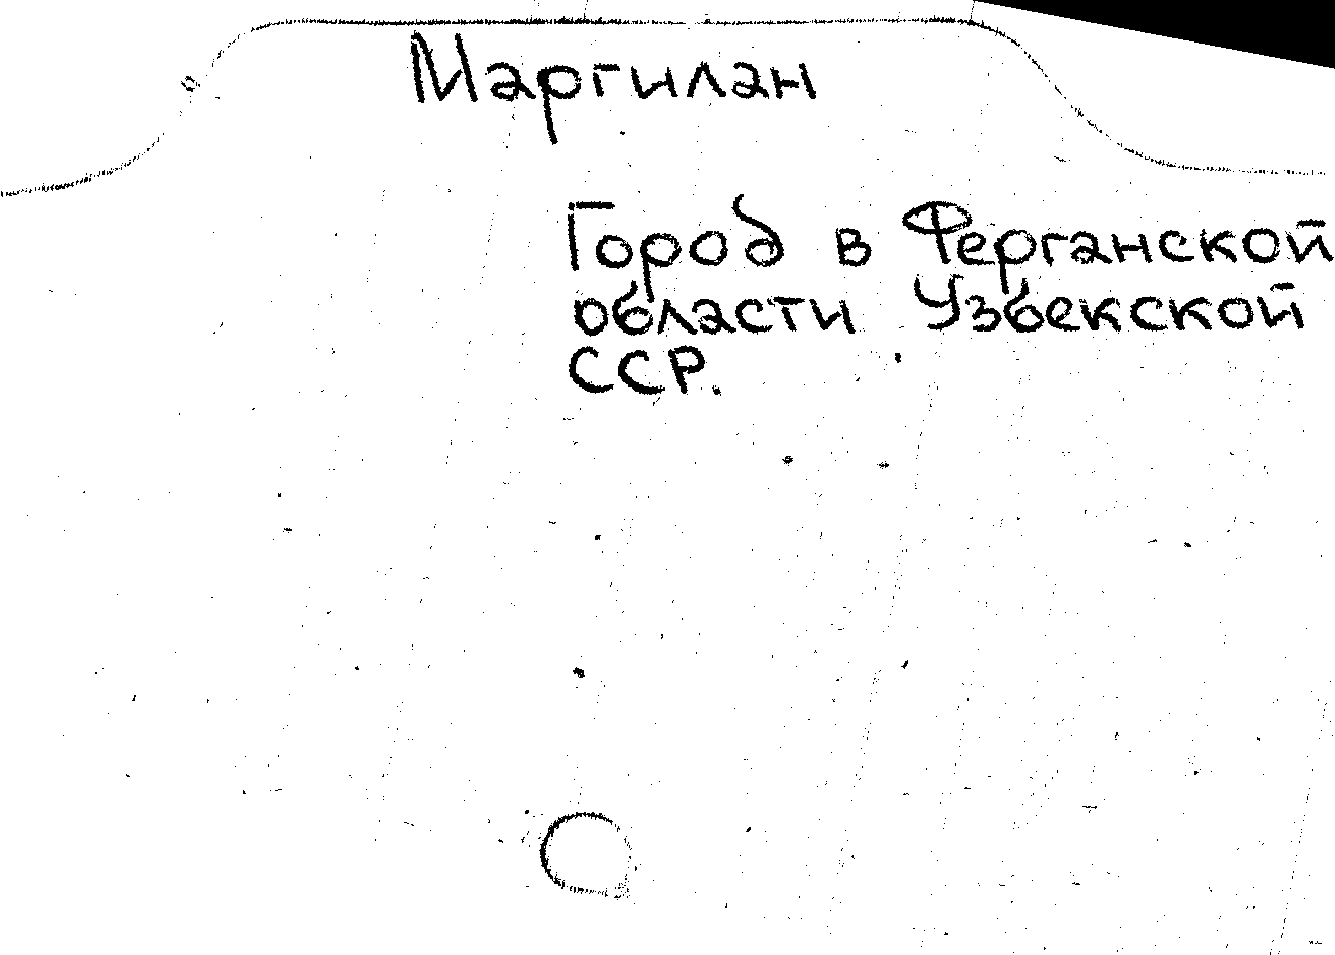 Маргилан
Город в Ферганской
области Узбекской
ССР.